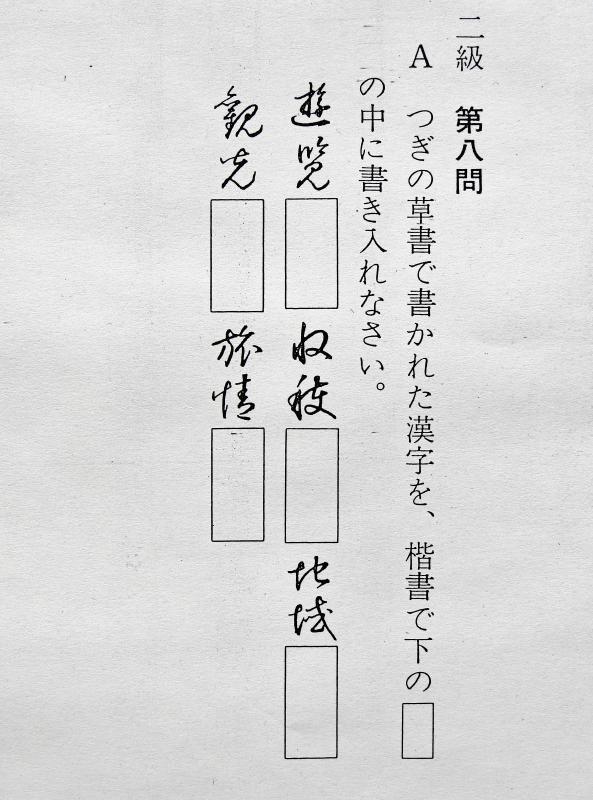 二級 第八問
A つぎの草書で書かれた漢字を、楷書で下の□
の中に書き入れなさい。
遊覧 収穫 地域
観光 旅情